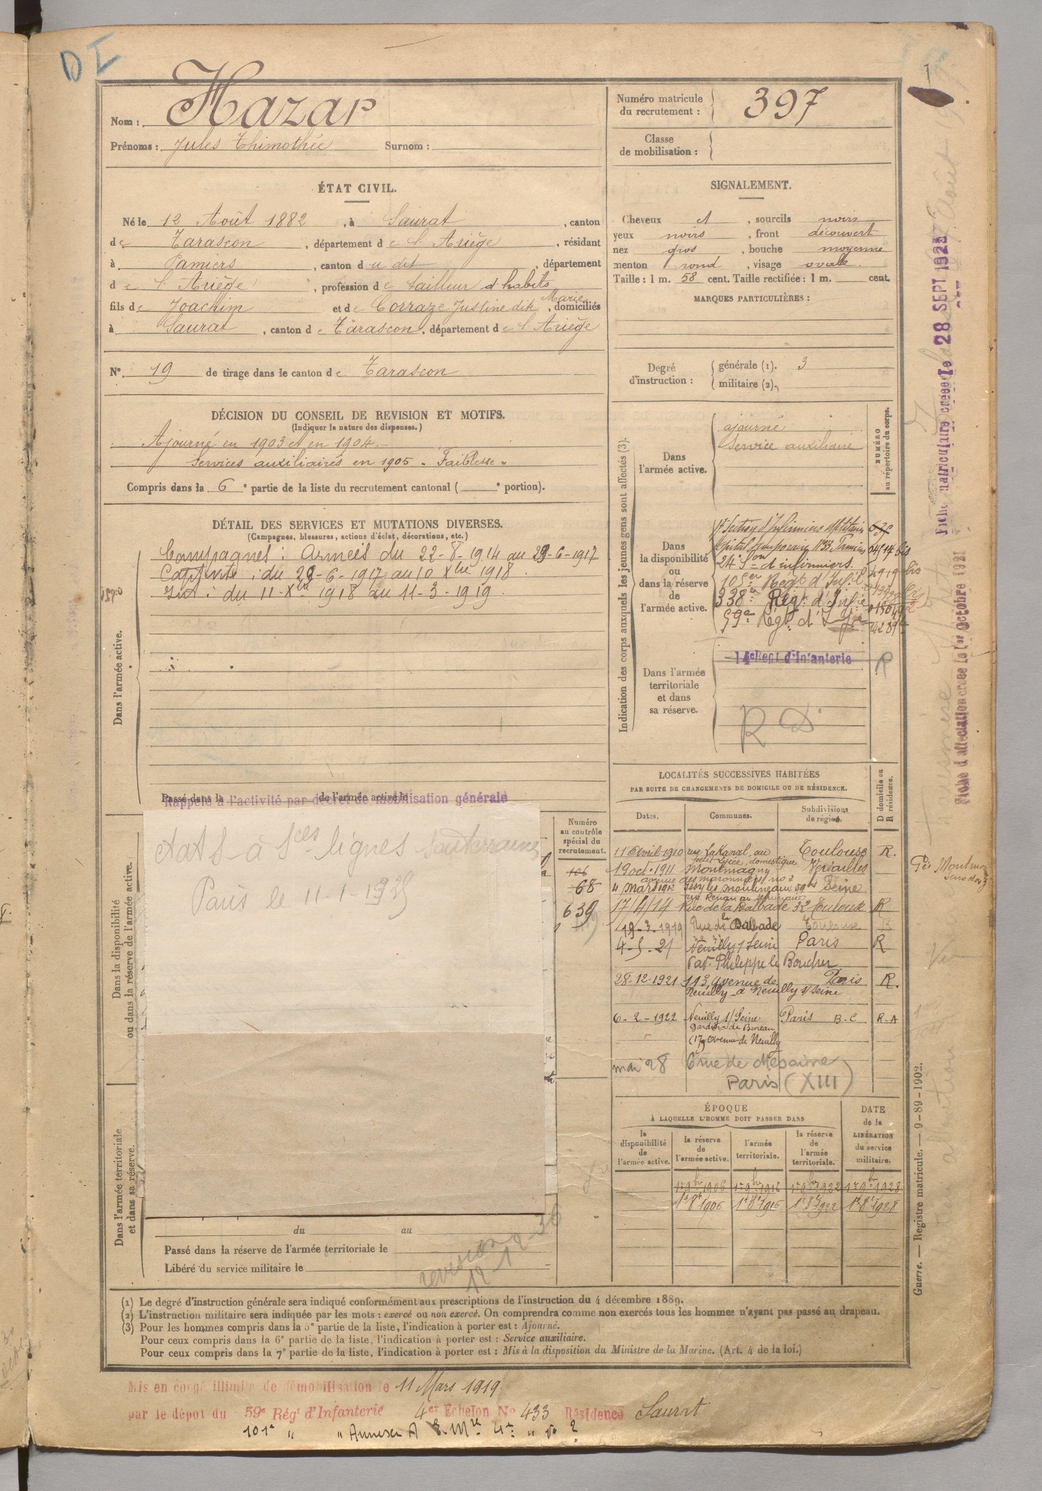 DI
Nom : Hazar
Prénoms : Jules Thimothée Surnom :
Numéro matricule du recrutement : 397
Classe de mobilisation :
ÉTAT CIVIL.
Né le 12 Août 1882, à Saurat, canton
de Tarascon, département de l'Ariège, résidant
à Pamiers, canton du dit, département
de l'Ariège, profession de tailleur d'habits
fils de Joachim et de Corraze Justine dite Marie, domiciliés
à Saurat, canton de Tarascon, département de l'Ariège
N° 19 de tirage dans le canton de Tarascon
SIGNALEMENT.
Cheveux et, sourcils noirs
yeux noirs, front découvert
nez gros, bouche moyenne
menton rond, visage ovale
Taille : 1 m. 58 cent. Taille rectifiée : 1 m. cent.
MARQUES PARTICULIÈRES :
Degré d'instruction : générale (1). 3
militaire (2).
DÉCISION DU CONSEIL DE REVISION ET MOTIFS.
(Indiquer la nature des dispenses.)
Ajourné en 1903 et en 1904.
Services auxiliaires en 1905 - Faiblesse -
Compris dans la 6e partie de la liste du recrutement cantonal ( e portion).
DÉTAIL DES SERVICES ET MUTATIONS DIVERSES.
(Campagnes, blessures, actions d'éclat, décorations, etc.)
Dans l'armée active.
Campagnes : Armées du 22-8-1914 au 29-6-1917
Captivité : du 29-6-1917 au 10 Xbre 1918
Int : du 11-Xbre 1918 au 11-3-1919
Passé dans la de l'armée active le
Rappelé à l'activité par décret de mobilisation générale
Indication des corps auxquels les jeunes gens sont affectés (3).
NUMÉRO au répertoire du corps.
Dans l'armée active.
ajourné
Service auxiliaire
Dans la disponibilité ou dans la réserve de l'armée active.
24e Son d'infirmiers
105e Régt d'Inf
338e Régt d'Infie
59e Regt d'Infie
Dans l'armée territoriale et dans sa réserve.
14e Régt d'Infanterie
R
R D
Dans la disponibilité ou dans la réserve de l'armée active.
Paris le 11-1-1929
Numéro au contrôle spécial du recrutement.
106
68
639
LOCALITÉS SUCCESSIVES HABITÉES
PAR SUITE DE CHANGEMENTS DE DOMICILE OU DE RÉSIDENCE.
Dates. Communes. Subdivisions de région. D domicile ou R résidence.
11 Avril 1910 rue Lakanal, au petit Lycée, domestique Toulouse R.
19 oct. 1911 Montmagny avenue des maronniers no 2 Versailles
4 mars 1912 Issy les moulineaux Seine
17/4/14 Rue de la Dalbade 32 Toulouse R
19-3-1919 Rue de la Dalbade Toulouse R
4-5-21 Neuilly s/Seine Paris R
Philippe le Boucher
28-12-1921 113, avenue de Neuilly à Neuilly s/Seine Paris R.
6-2-1922 Neuilly s/Seine Paris B.C R.A
garçon de Bureau
179 avenue de Neuilly
mai 28 6 rue de Mésaivre
Paris (XIII)
Dans l'armée territoriale et dans sa réserve.
ÉPOQUE
À LAQUELLE L'HOMME DOIT PASSER DANS
DATE de la LIBÉRATION du service militaire.
la disponibilité de l'armée active.
la réserve de l'armée active.
l'armée territoriale.
la réserve de l'armée territoriale.
1er 9bre 1906 1er 9bre 1916 1er 9bre 1922 1er 9bre 1928
1er 8bre 1906 1er 8bre 1916 1er 8bre 1922 1er 8bre 1928
du au
Passé dans la réserve de l'armée territoriale le
Libéré du service militaire le
revision
(1) Le degré d'instruction générale sera indiqué conformément aux prescriptions de l'instruction du 4 décembre 1889.
(2) L'instruction militaire sera indiquée par les mots : exercé ou non exercé. On comprendra comme non exercés tous les hommes n'ayant pas passé au drapeau.
(3) Pour les hommes compris dans la 5e partie de la liste, l'indication à porter est : Ajourné.
Pour ceux compris dans la 6e partie de la liste, l'indication à porter est : Service auxiliaire.
Pour ceux compris dans la 7e partie de la liste, l'indication à porter est : Mis à la disposition du Ministre de la Marine. (Art. 4 de la loi.)
Mis en congé illimité de démobilisation le 11 Mars 1919
par le dépôt du 59e Régt d'Infanterie 4er Echelon No 433 Résidence Saurat
Fiche matriculaire créée le 28 SEPT 1923
Fiche d'affectation créée le 1er Octobre 1921
Guerre. — Registre matricule. — 9-89-1902.